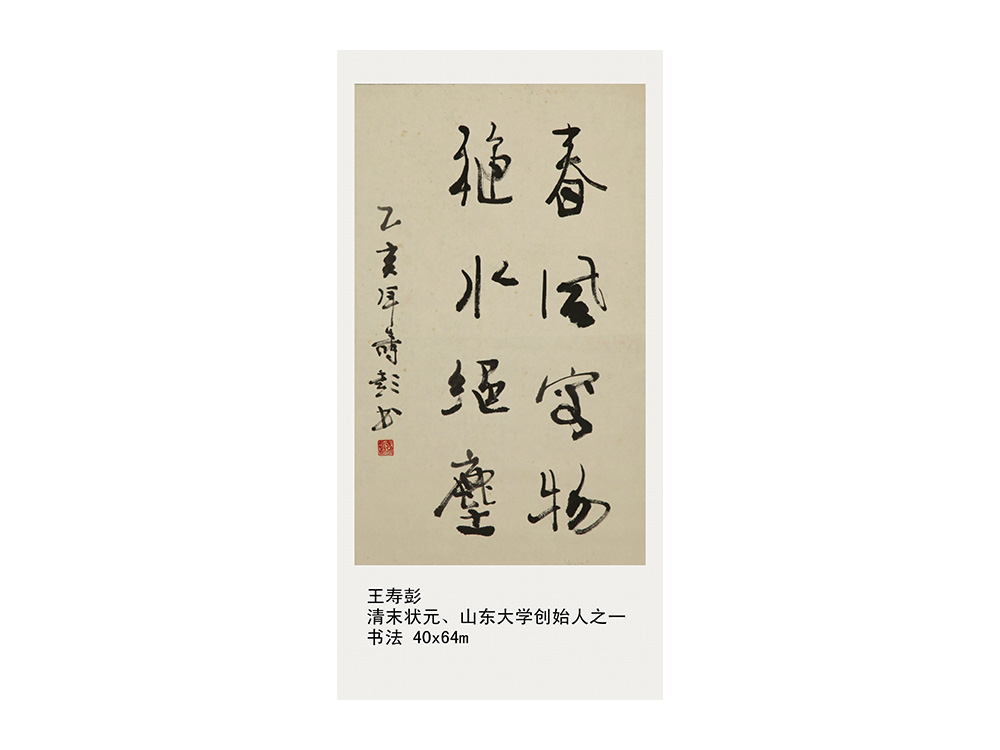 春風容物
穐水絕塵
乙亥年壽彭書
王寿彭
清末状元、山东大学创始人之一
书法 40x64m